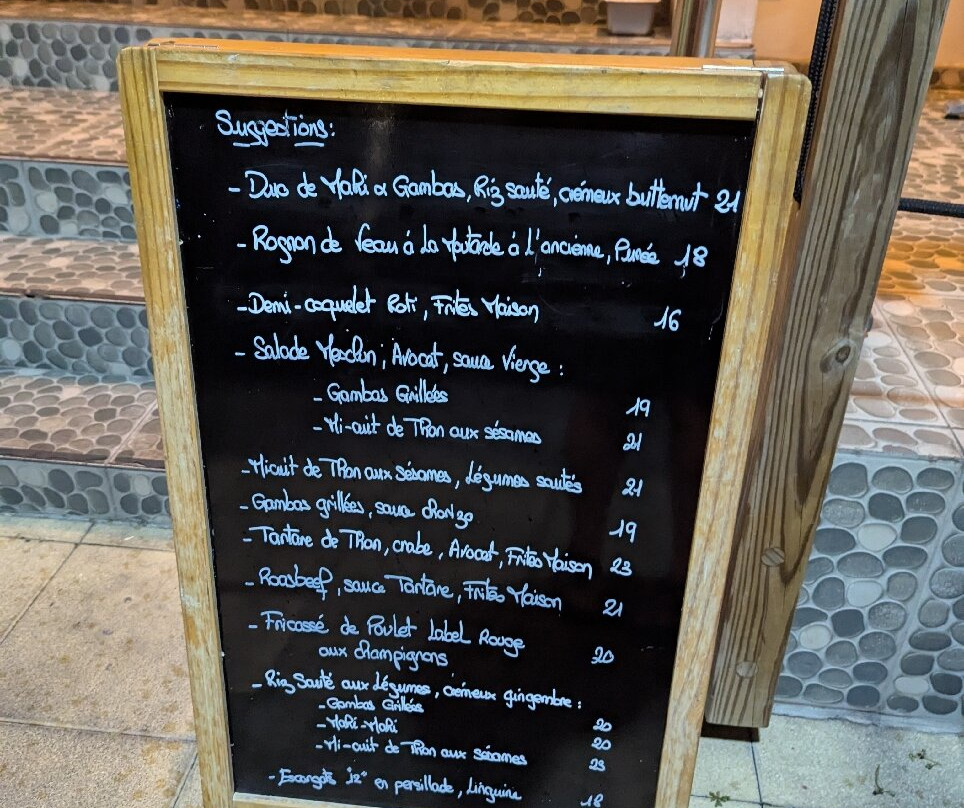 Suggestions:
- Duo de Mahi & Gambas, Riz sauté, crémeux butternut 21
- Rognon de Veau à la Moutarde à l'ancienne, Purée 18
- Demi-coquelet Roti, Frites Maison 16
- Salade Mesclun, Avocat, sauce Vierge :
- Gambas Grillées 19
- Mi-cuit de Thon aux sésames 21
- Micuit de Thon aux Sésames, légumes sautés 21
- Gambas grillées, sauce chorizo 19
- Tartare de Thon, crabe, Avocat, Frites Maison 23
- Roasbeef, sauce Tartare, Frites Maison 21
- Fricassé de Poulet Label Rouge
aux champignons 20
- Riz Sauté aux légumes, crémeux gingembre :
- Gambas Grillées 20
- Mahi-Mahi 20
- Mi-cuit de Thon aux sésames 23
- Escargots "12" en persillade, linguine 18